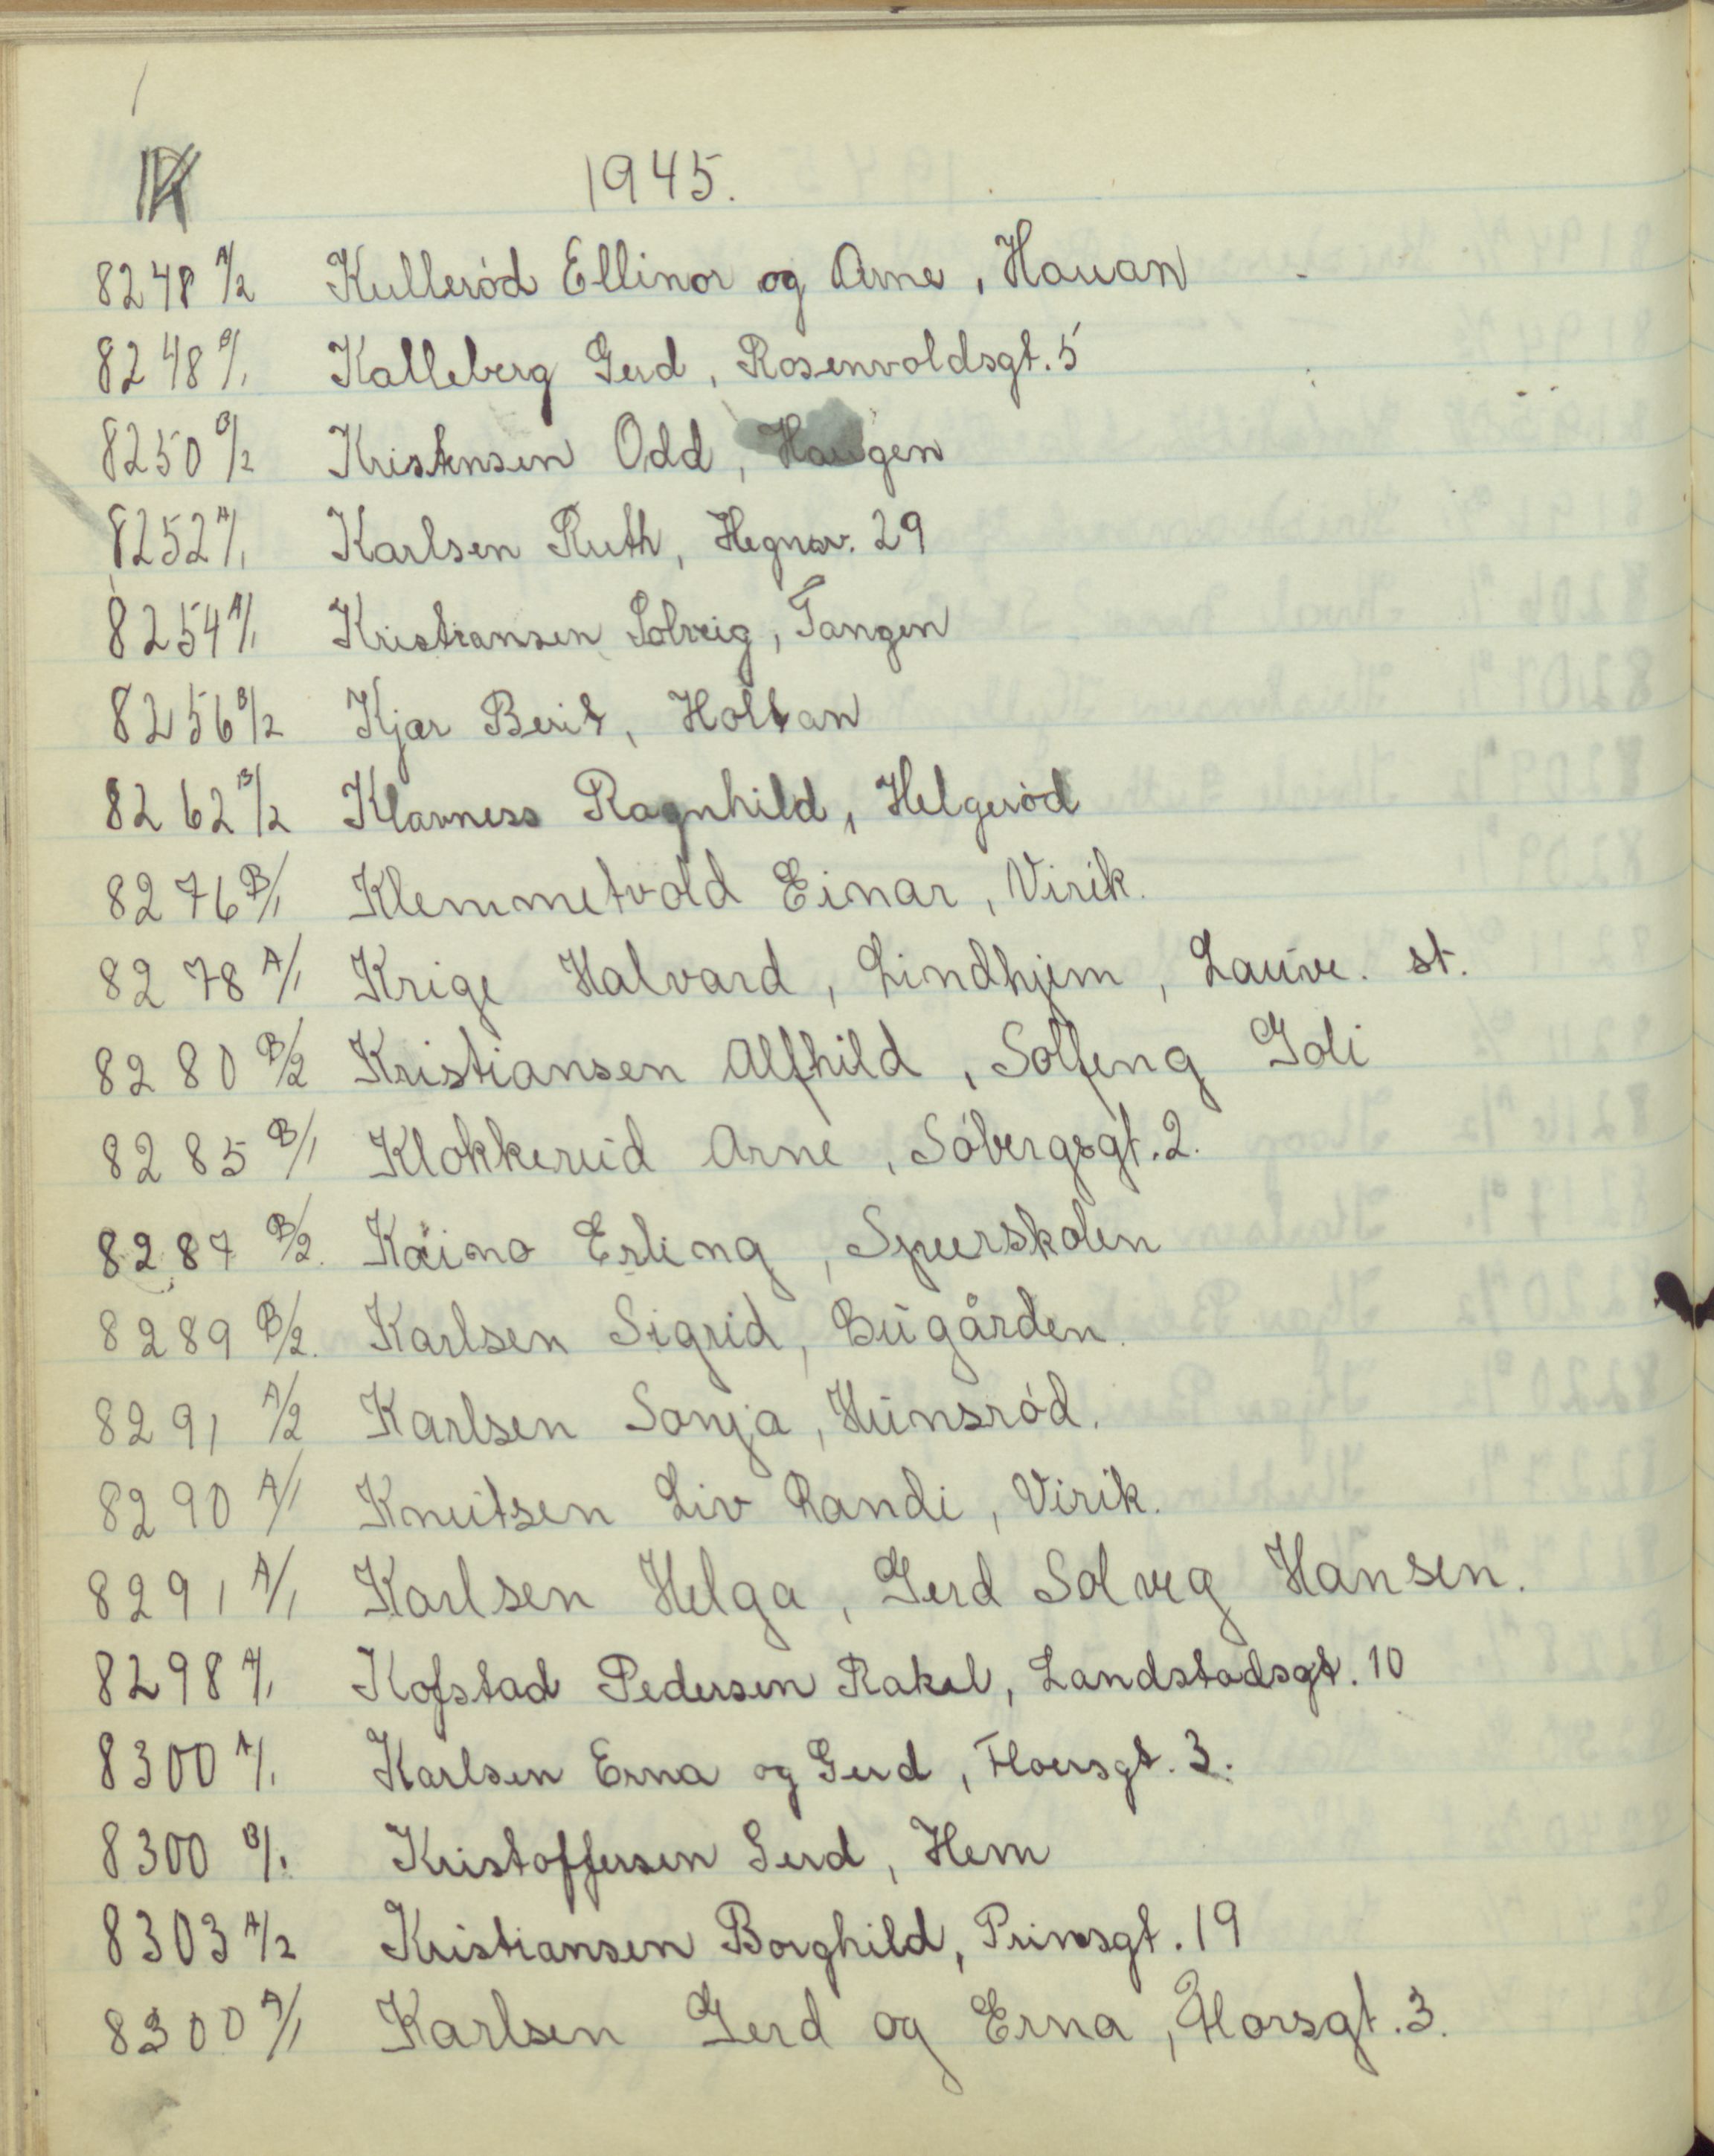 K 1945.
8248 A/2 Kullerød Ellinor og Arne, Hauan
8248 B/1 Kalleberg Gerd, Rosenvoldsgt. 5
8250 B/2 Kristensen Odd, Haugen
8252 A/1 Karlsen Ruth, Hegnav. 29
8254 A/1 Kristiansen Solveig, Tangen
8256 B/2 Kjær Berit, Holtan
8262 B/2 Klavness Ragnhild, Helgerød
8276 B/1 Klemmetvold Einar, Virik.
8278 A/1 Krige Halvard, Lindhjem, Lauve. st.
8280 B/2 Kristiansen Alfhild, Solfeng Goli
8285 B/1 Klokkerud Arne, Søbergsgt. 2.
8287 B/2. Käino Erling, Spurskolen
8289 B/2. Karlsen Sigrid, Bugården.
8291 A/2 Karlsen Sonja, Hunsrød.
8290 A/1 Knutsen Liv Randi, Virik.
8291 A/1 Karlsen Helga, Gerd Solveg Hansen.
8298 A/1 Kofstad Pedersen Rakel, Landstadsgt. 10
8300 A/1 Karlsen Erna og Gerd, Floersgt. 3.
8300 B/1. Kristoffersen Gerd, Hem
8303 A/2 Kristiansen Borghild, Prinsgt. 19
8300 A/1 Karlsen Gerd og Erna, Florsgt. 3.